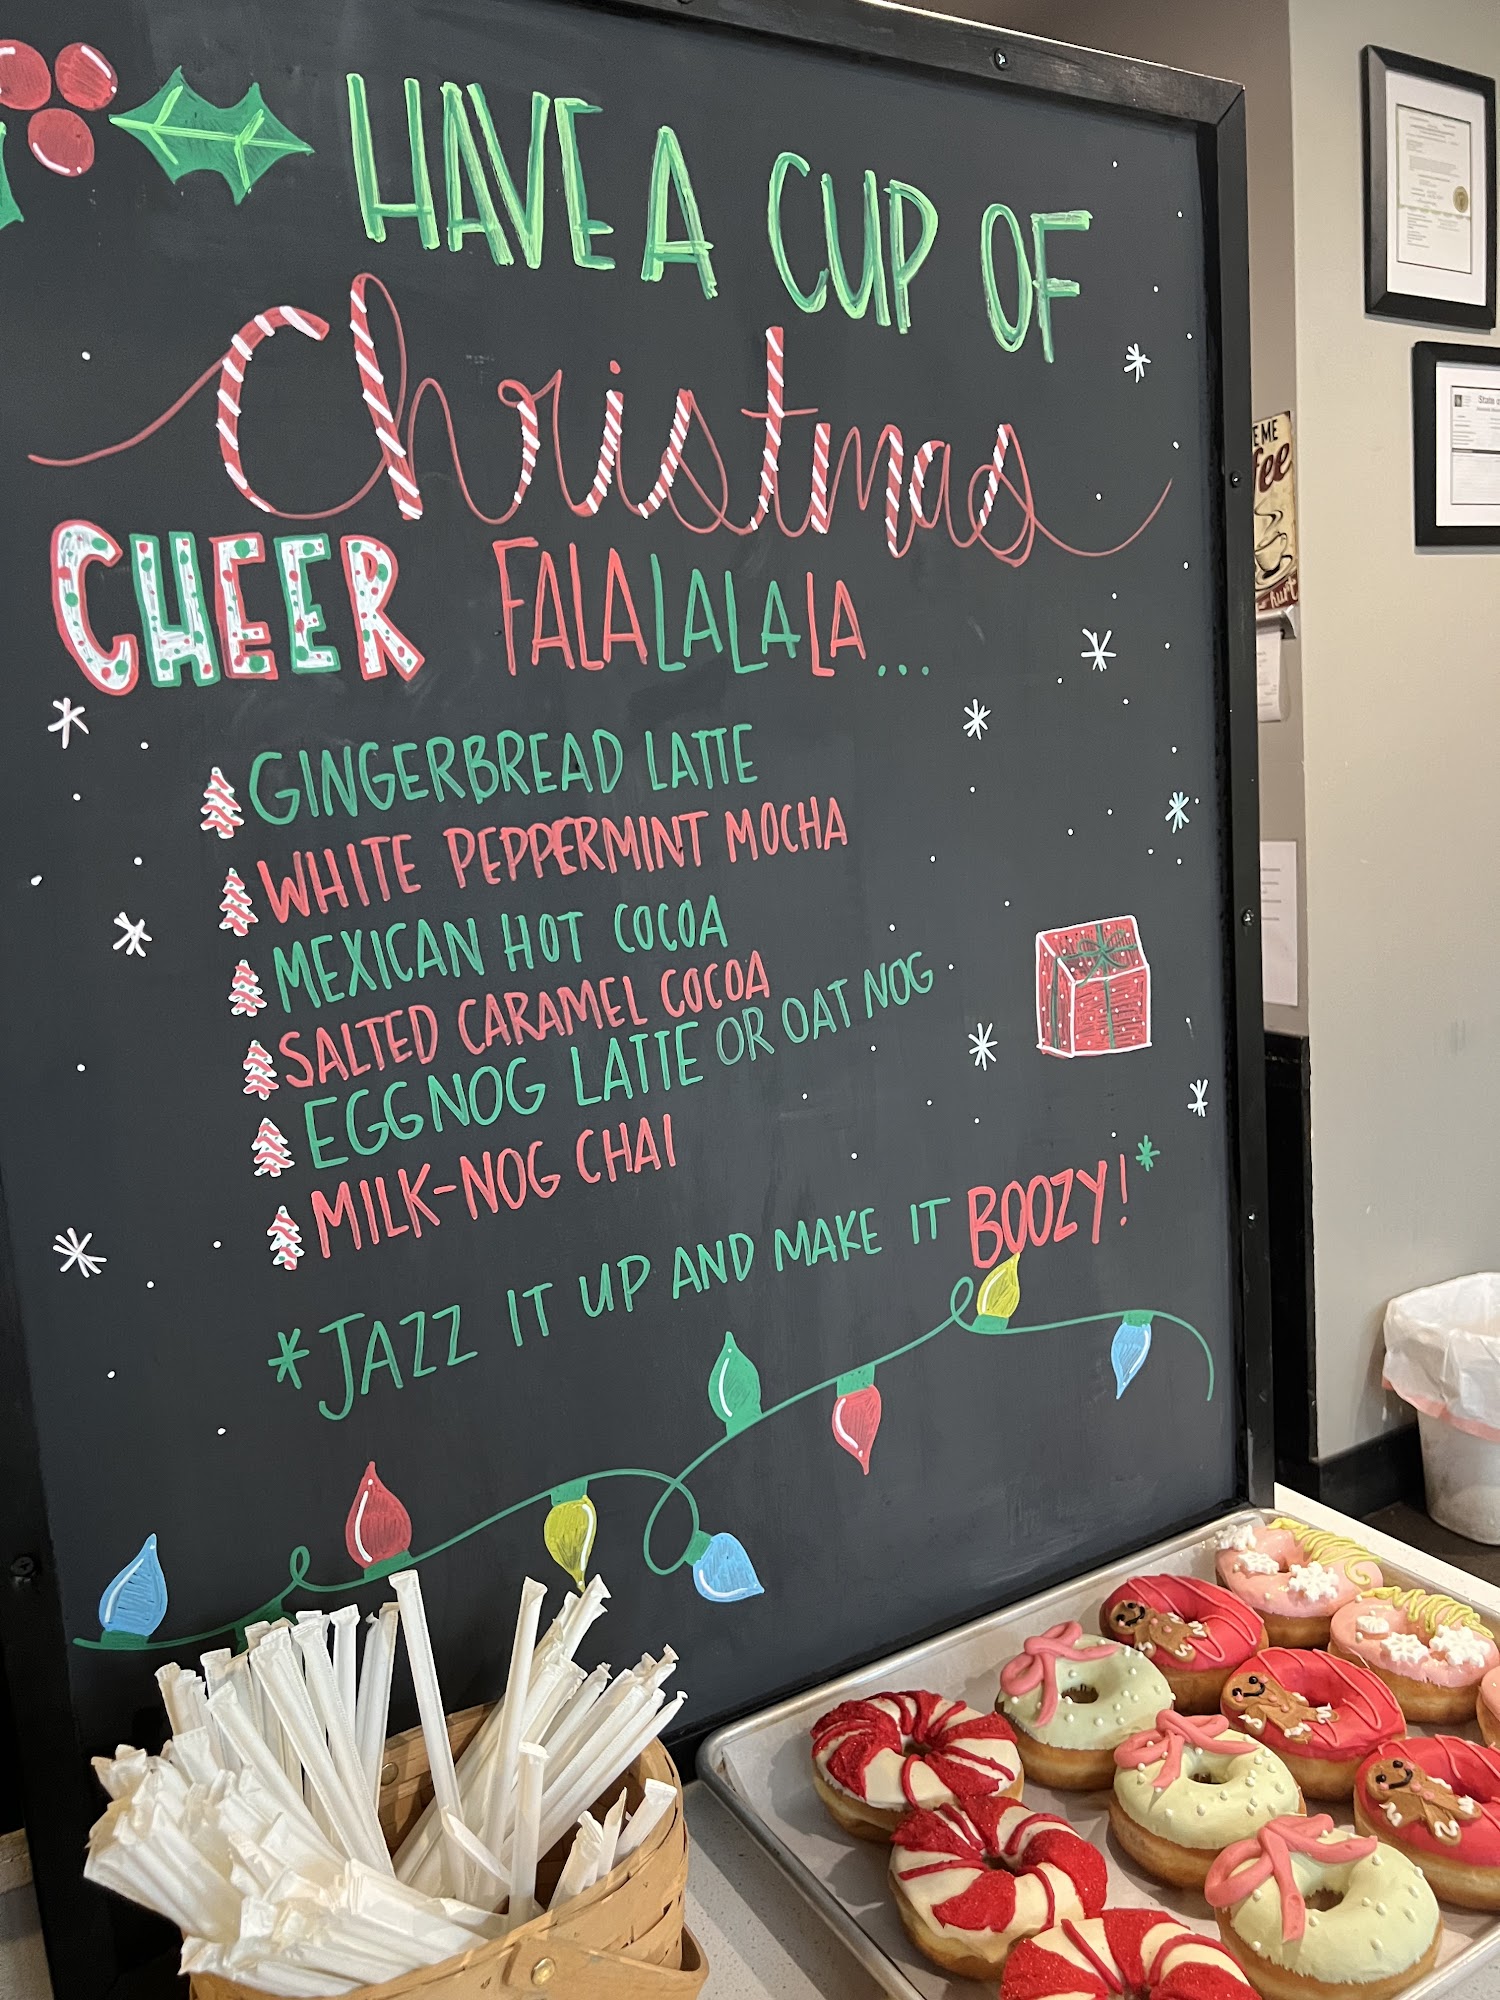 HAVE A CUP OF
Christmas
CHEER FALALALALALA...
GINGERBREAD LATTE
WHITE PEPPERMINT MOCHA
MEXICAN HOT COCOA
SALTED CARAMEL COCOA
EGGNOG LATTE OR OAT NOG
MILK-NOG CHAI
*JAZZ IT UP AND MAKE IT BOOZY!*
E ME
fee
hurt
State o